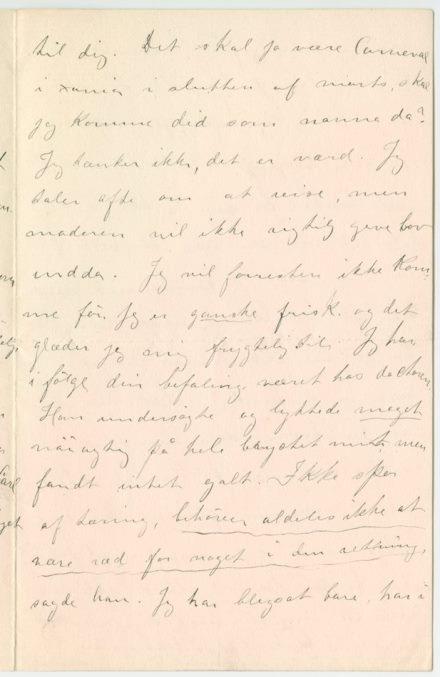 til dig. Det skal jo være Carneval
i xania i slutten af marts, skal
jeg komme did som nanna da?
Jeg tænker ikke, det er værd. Jeg
taler ofte om at reise, men
maderen vil ikke rigtig give lov
endda. Jeg vil forresten ikke kom
me før jeg er ganske frisk. og det
glæder jeg mig frygtelig til. Jeg har
i følge din befaling været hos doctoren
Han undersøgte og lyttede meget
nöiagtig på hele brystet mit, men
fandt intet galt. Ikke spor
af tæring, behöver aldeles ikke at
være ræd for noget i den retning,
sagde han. Jeg har blegsot bare, har i